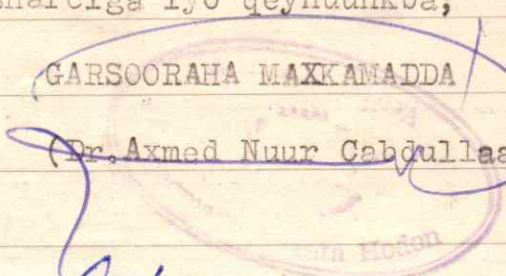 iyo qeynuunkba,
GARSOORAHA MAXKAMADDA
(Dr.Axmed Nuur Cabdullaa
Hodon